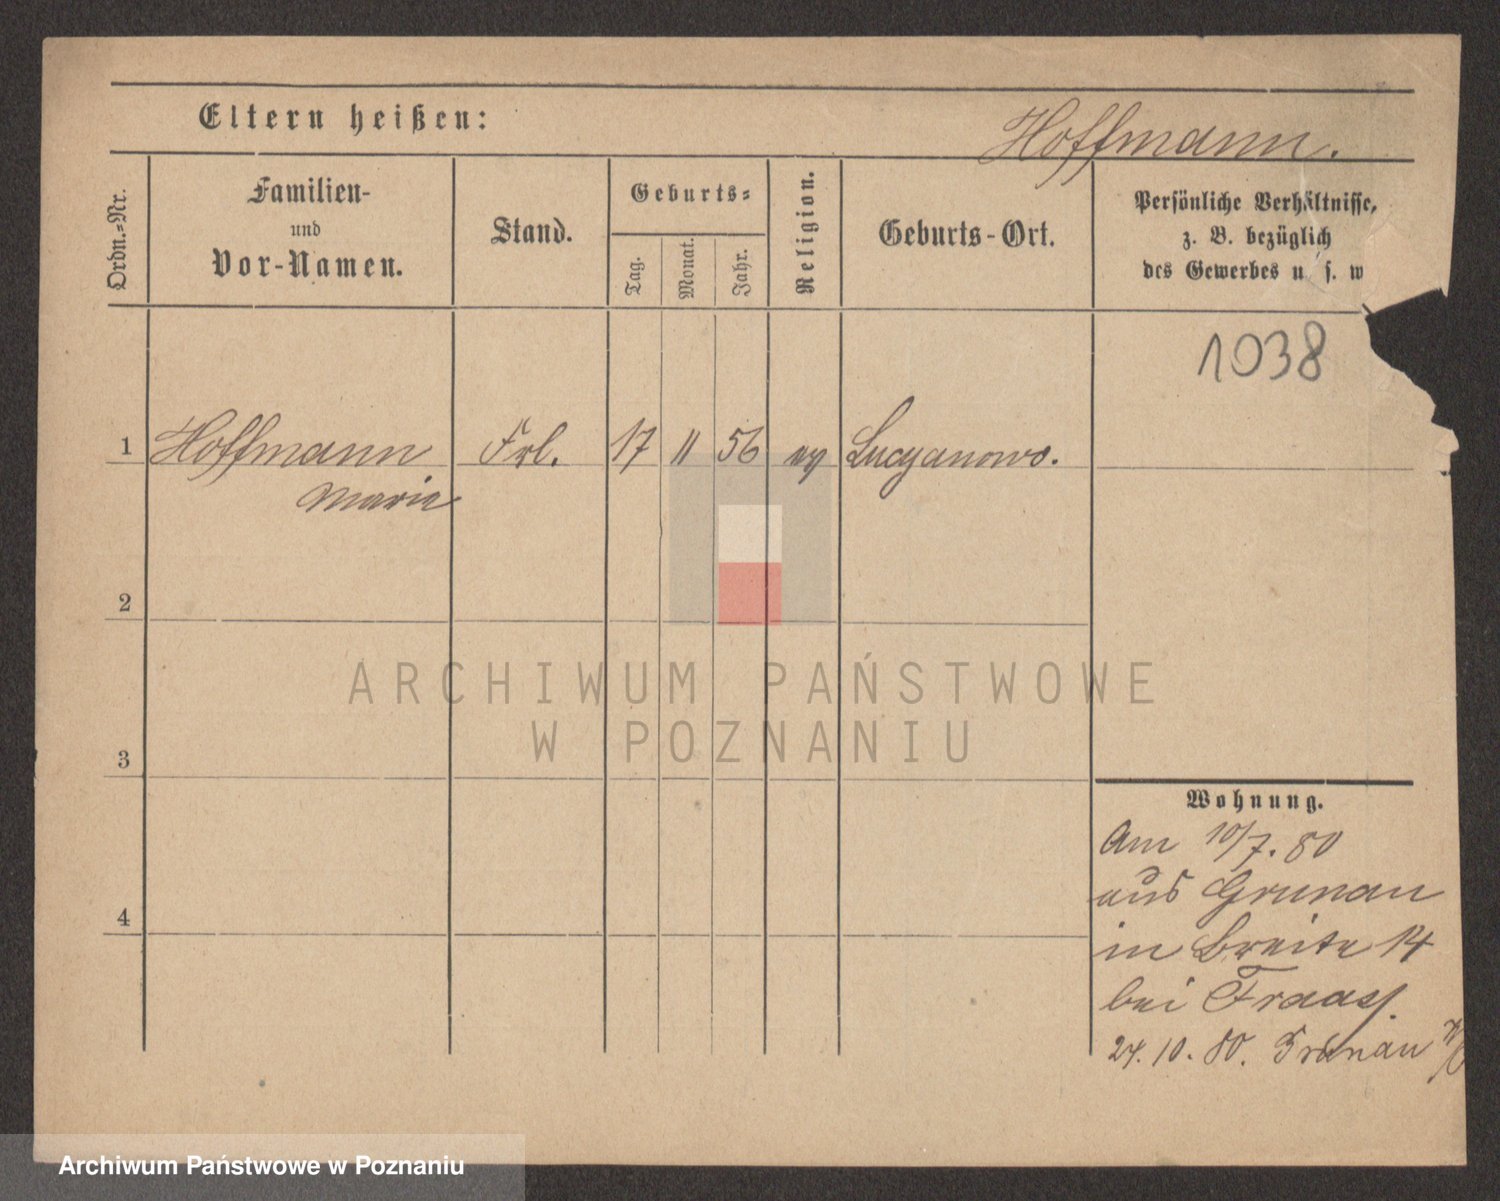 Eltern heißen:
Hoffmann.
Ordn.=Nr.
Familien-
und
Vor-Namen.
Stand.
Geburts=
Tag.
Monat.
Jahr.
Religion.
Geburts-Ort.
Persönliche Verhältnisse,
z. B. bezüglich
des Gewerbes u. s. w
1038
1 Hoffmann Frl. 17 11 56 ev Lucyanowo.
Marie
2
ARCHIWUM PAŃSTWOWE
W POZNANIU
3
Wohnung.
Am 10/7. 80
aus Grunau
in Breite 14
bei Fraass.
4
24. 10. 80. Grunau
Archiwum Państwowe w Poznaniu